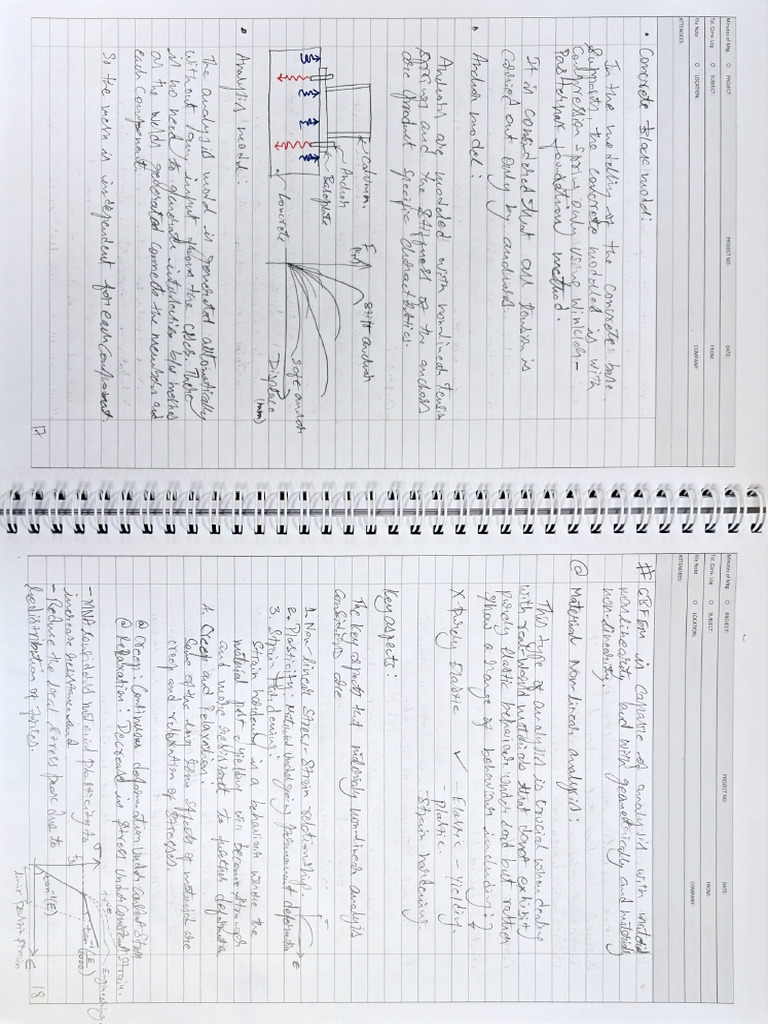 Minutes of Mtg
Tel. Conv. Log
File Note
PROJECT:
SUBJECT:
LOCATION:
PROJECT NO:
DATE:
FROM:
COMPANY:
ATTENDEES:
• Concrete Block model:
In the modelling of the concrete base
the concrete modelled is with
Compression spring only using Winkler-
Pasternak foundation method.
It is considered that all tension is
carried out only by anchors
• Anchor model:
Anchors are modeled with nonlinear tension
springs and the stiffness of the anchors
are product specific characteristics.
Column
Anchor
Baseplate
Concrete
F
stiff anchor
soft anchor
Displace
(mm)
• Analysis model:
The analysis model is generated automatically
without any input from the user. There
is no need to generate intersection b/w meshes
as the welds generated connects the members and
each component.
So the mesh is independent for each component
17
Minutes of Mtg
Tel. Conv. Log
File Note
PROJECT:
SUBJECT:
LOCATION:
PROJECT NO:
DATE:
FROM:
COMPANY:
ATTENDEES:
# CBFEM is capable of analysis with material
nonlinearity but with geometrically and material
non-linearity.
@ Material Nonlinear analysis:
This type of analysis is crucial when dealing
with real world materials that donot exhibit
purely elastic behaviour under load but rather
show a range of behaviour including?
X Purely Elastic ✓ - Elastic - Yielding.
- Plastic.
- Strain hardening
Key aspects:
The key aspects that materially nonlinear analysis
considers are
1. Non-linear Stress-Strain relationship.
2. Plasticity: Material undergoing permanent deformation
3. Strain Hardening:
Strain hardened is a behaviour where the
material past yielding will become stronger
and more resistant to further deformation
4. Creep and Relaxation:
Some of the long term effects of material are
creep and relaxation of stresses
@ Creep: Continuous deformation under constant stress
@ Relaxation: Decrease in stress under constant strain.
- MNA considers material plasticity to
increase resistance and
- Reduce the local stress peak due to
redistribution of forces.
σ
ε
tan⁻¹(E)
tan⁻¹(E/1000)
Engineering
limit plastic strain
18